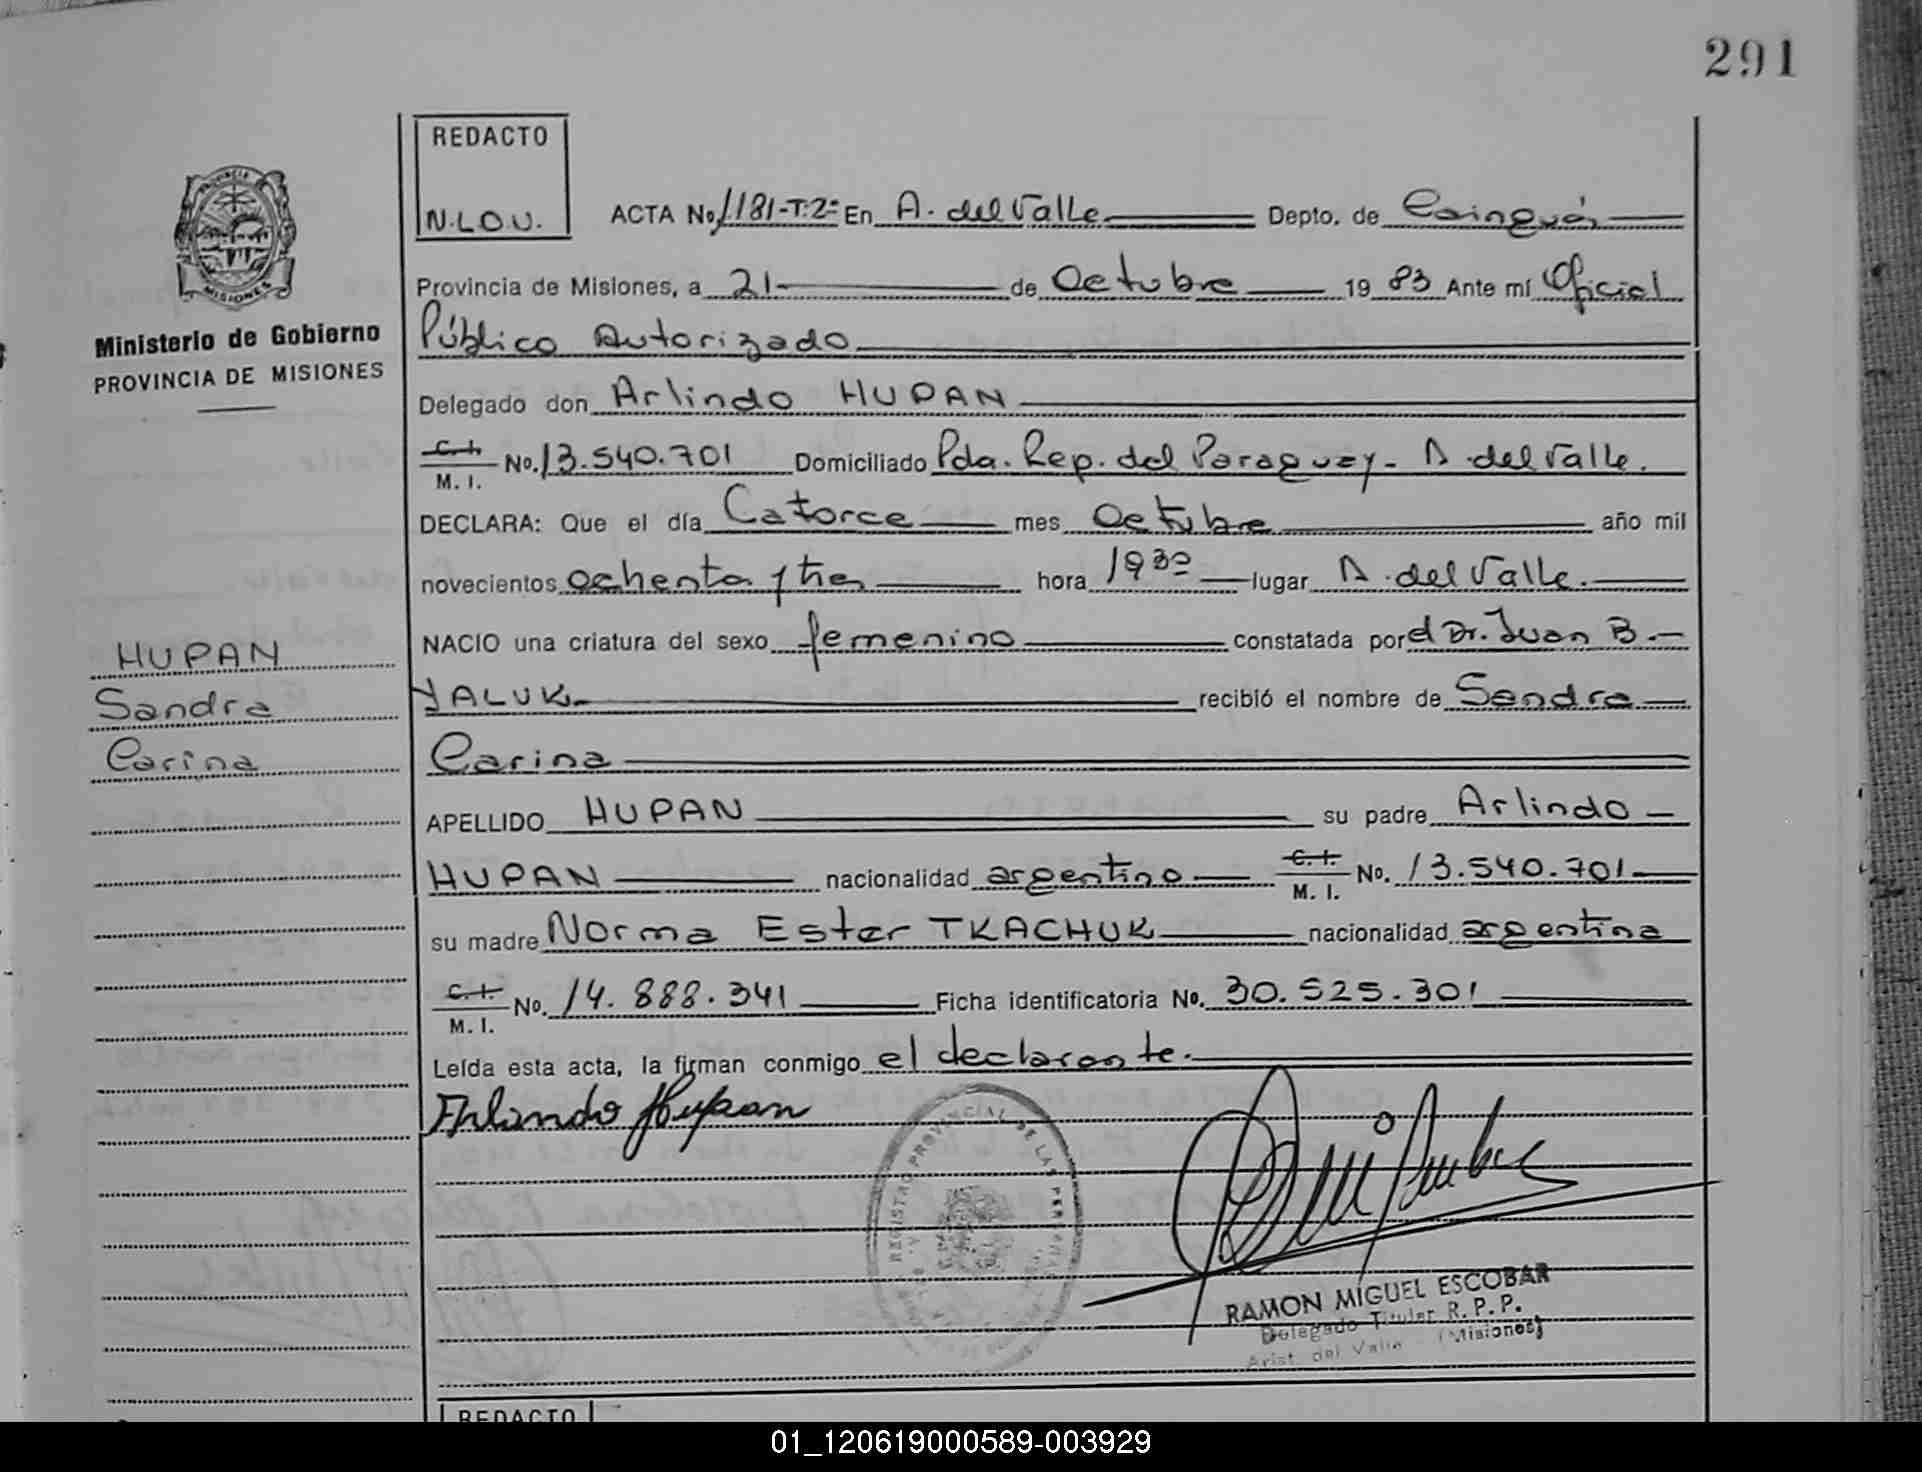 291
REDACTO
N.L.O.U.
ACTA No. 1181-T:2º En A. del Valle Depto. de Cainguás
Provincia de Misiones, a 21 de Octubre 19 83 Ante mí Oficial
Público Autorizado
Delegado don Arlindo HUPAN
C.I. M. I. No. 13.540.701 Domiciliado Pda. Rep. del Paraguay - A. del Valle.
DECLARA: Que el día Catorce mes Octubre año mil
novecientos ochenta y tres hora 1930 lugar A. del Valle.
NACIO una criatura del sexo femenino constatada por el Dr. Juan B.
YALUK recibió el nombre de Sandra
Carina
APELLIDO HUPAN su padre Arlindo
HUPAN nacionalidad argentino C.I. M. I. No. 13.540.701
su madre Norma Ester TKACHUK nacionalidad argentina
C.I. M. I. No. 14.888.341 Ficha identificatoria No. 30.525.301
Leída esta acta, la firman conmigo el declarante.
Arlindo Hupan
PROVINCIA
MISIONES
Ministerio de Gobierno
PROVINCIA DE MISIONES
HUPAN
Sandra
Carina
REGISTRO PROVINCIAL DE LAS PERSONAS
RAMON MIGUEL ESCOBAR
Delegado Titular R. P. P.
Arist. del Valle - (Misiones)
REDACTO
01_120619000589-003929